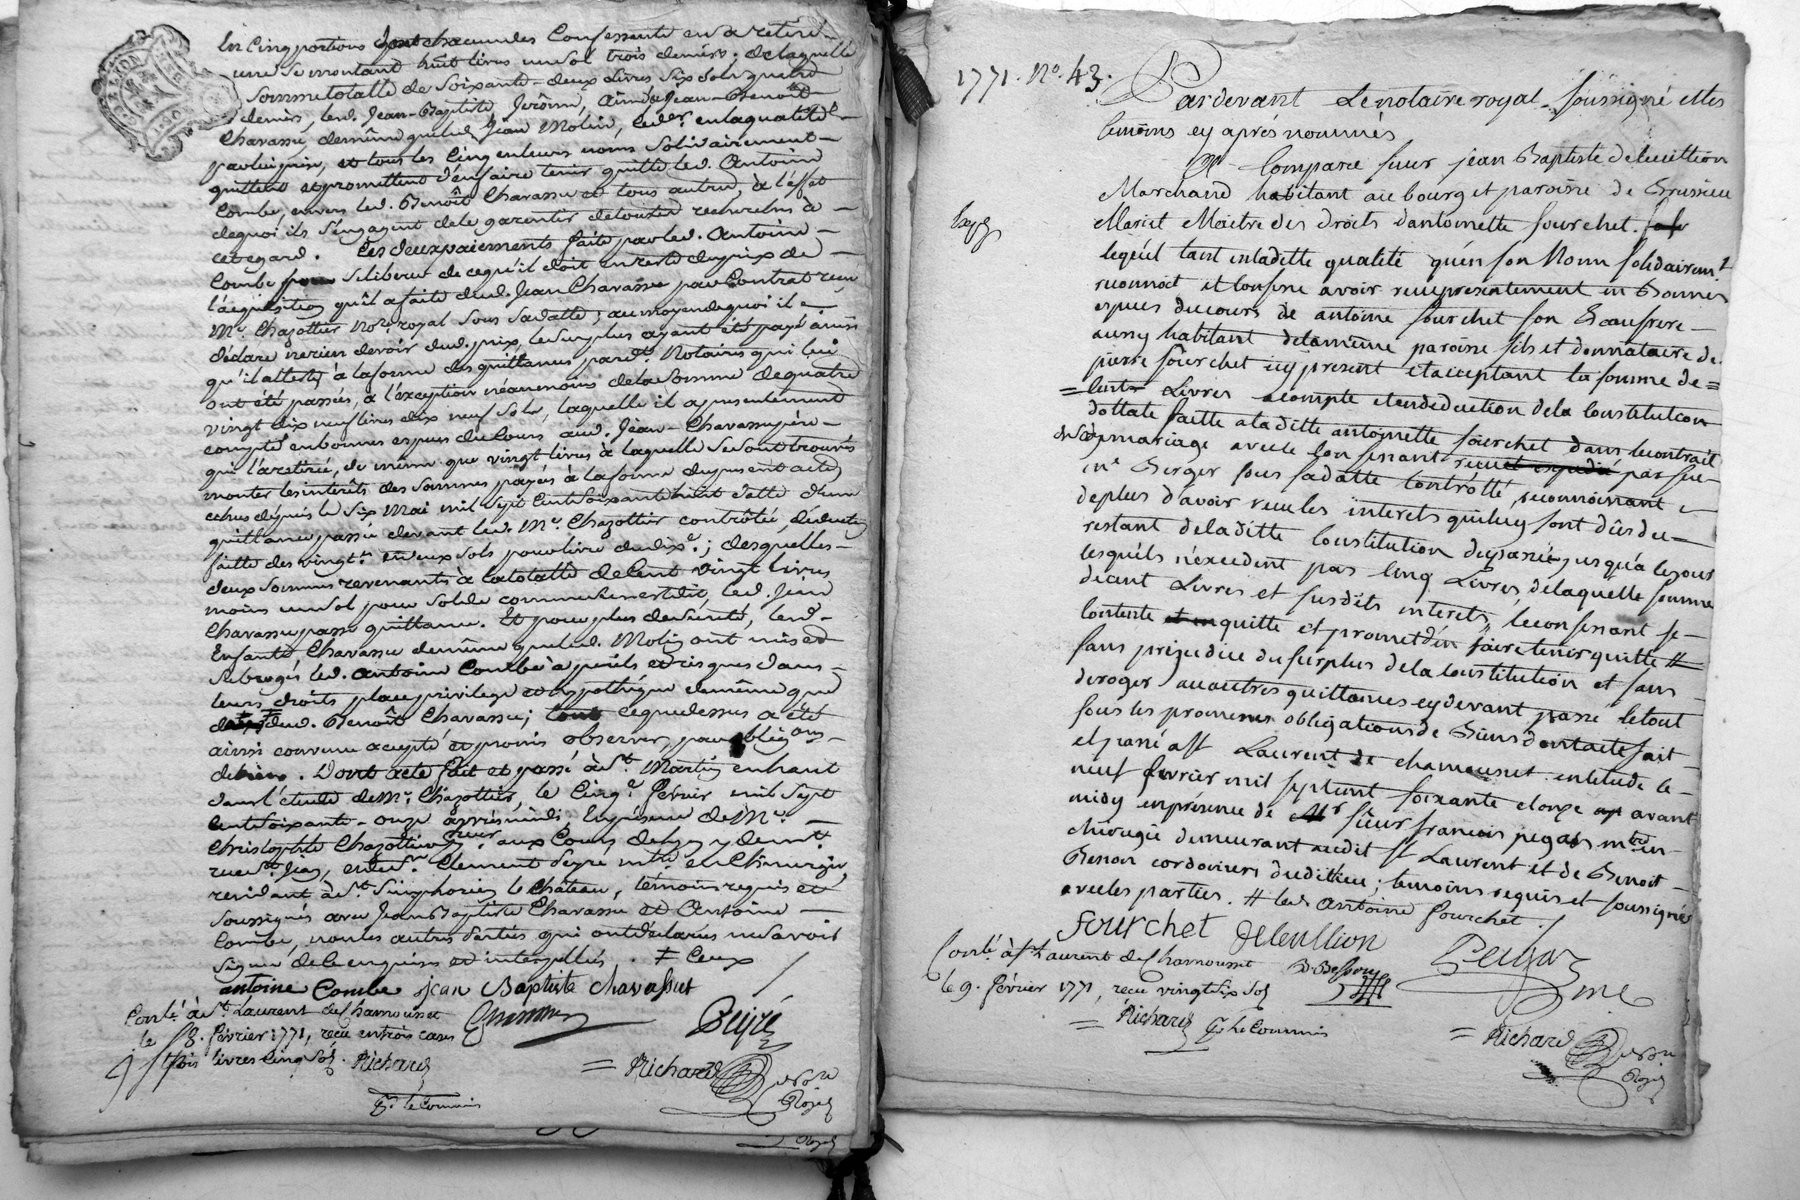 En cinq portions dont chacun des Consessents en a retiré
une se montant huit livres un sol trois deniers; de laquelle
somme totalle de soixante-deux livres six sols quatre
deniers, led. Jean-Baptiste, Jerôme, Aimé & Jean-Benoît
Chavassu, de même que led. Jean Molin, led. en laqualité
et tous les cinq en leurs noms solidairement
quittent et promettent d'en faire tenir quitte led. Antoine
Combe, envers led. Benoît Chavassu et tous autres, à l'effet
dequoi ils s'engagent de le garentir de toutes recherches à
cet egard. Ces deux paiements faits par led. Antoine
Combe se liberer de ce qu'il doit en reste du prix de
l'acquisition qu'il a faite dud. Jean Chavassu par Contrat reçu
Me. Chazottier Nore. royal sous sa datte; au moyen dequoi il
déclare ne rien devoir dud. prix, le surplus ayant été payé ainsi
qu'il atteste à la forme des quittances pard. Notaires qui lui
ont été passées, à l'exception néanmoins de la somme de quatre
vingt dix neuf livres dix neuf sols, laquelle il a presentement
compté en bonnes especes du Cours aud. Jean-Chavassu père
qui l'a retirée, de même que vingt livres à laquelle se sont trouvés
monter les interêts des sommes payées à la forme du present acte
echus depuis le six Mai mil sept cent soixante huit datte d'une
quittance passée devant led. Me. Chazottier contrôlée, déduction
faitte des vingt. en deux sols pour livre dudix.; desquelles
deux sommes revenants à la totalle de Cent vingt livres
moins un sol pour solde comme il est dit, led. Jean
Chavassu passe quittance. Et pour plus de sûreté, lesd.
Enfants Chavassu de même que led. Molin ont mis et
subrogés led. Antoine Combe à perils et risques dans
leurs droits place privilege et hypothèque de même que
dud. Benoît Chavassu; ce que dessus a été
ainsi convenu accepté et promis observer, par obligaons
de biens. Dont acte fait et passé à St. Martin en haut
dans l'étude de Me. Chazottier, le Cinq. Février mil sept
cent soixante-onze après midi, En présence de Me.
Christophle Chazottier aux Cours de Lyon y demt.
rue St. Jean, et de Sr. Clement Peyre mtre. en Chirurgie,
residant à St. Simphorien le Château, témoins requis et
soussignés avec Jean Baptiste Chavassu et Antoine
Combe, non les autres parties qui ont déclarés ne savoir
signer de ce enquises et interpellés. ‡ Ceux
antoine Combe jean Baptiste chavassut
Peyré
Conlé à St. Laurent de Chamousset
le 18. Février 1771, reçu en trois cases
trois livres cinq sols. Richard
= Richard
Pr. le Commis
1771. No. 43.
Pardevant Le notaire royal soussigné et les
temoins cy après nommés
Compare sieur jean Baptiste deleullion
Marchand habitant au bourg et paroisse de Brussieu
Expé
Mari et Maitre des droits d'antoinette fourchet.
lequel tant en la ditte qualité qu'en son Nom solidairemt
reconnoit et confesse avoir reçu presentement en Bonnes
especes du cours de antoine fourchet son Beaufrere
aussy habitant de la même paroisse fils et donnataire de
pierre fourchet icy present et acceptant la somme de
= Cent Livres acompte et en deduction de la Constitution
dottale faitte a la ditte antoinette fourchet dans le contrait
de son mariage avec le Confessant reçu par feu
me. Berger sous sa datte Controllé, reconnoissant
de plus d'avoir reçu les interets qui luy sont dûs du
restant de la ditte Constitution du passé jusqu'à le jour
lesquels n'excedent pas Cinq Livres, de laquelle somme
de cent Livres et susdits interets, le confessant se
contente quitte et promet d'en faire tenir quitte #
sans prejudice du surplus de la Constitution et sans
deroger aux autres quittances cy devant passé le tout
sous les promesses obligations de Biens dont acte fait
et passé a St Laurent de chamousset en l'etude le
neuf fevrier mil sept cent soixante et onze avant
midy en présence de sieur francois pegas mtre en
chirurgie demeurant audit St Laurent et de Benoit
Besson cordonier dudit lieu; temoins requis et soussignés
avec les parties. # led. Antoine fourchet.
fourchet deleullion
B. Besson
Conlé à St. Laurent de Chamousset
le 9. Février 1771, reçu vingt six sols
= Richard Pr. le Commis
= Richard